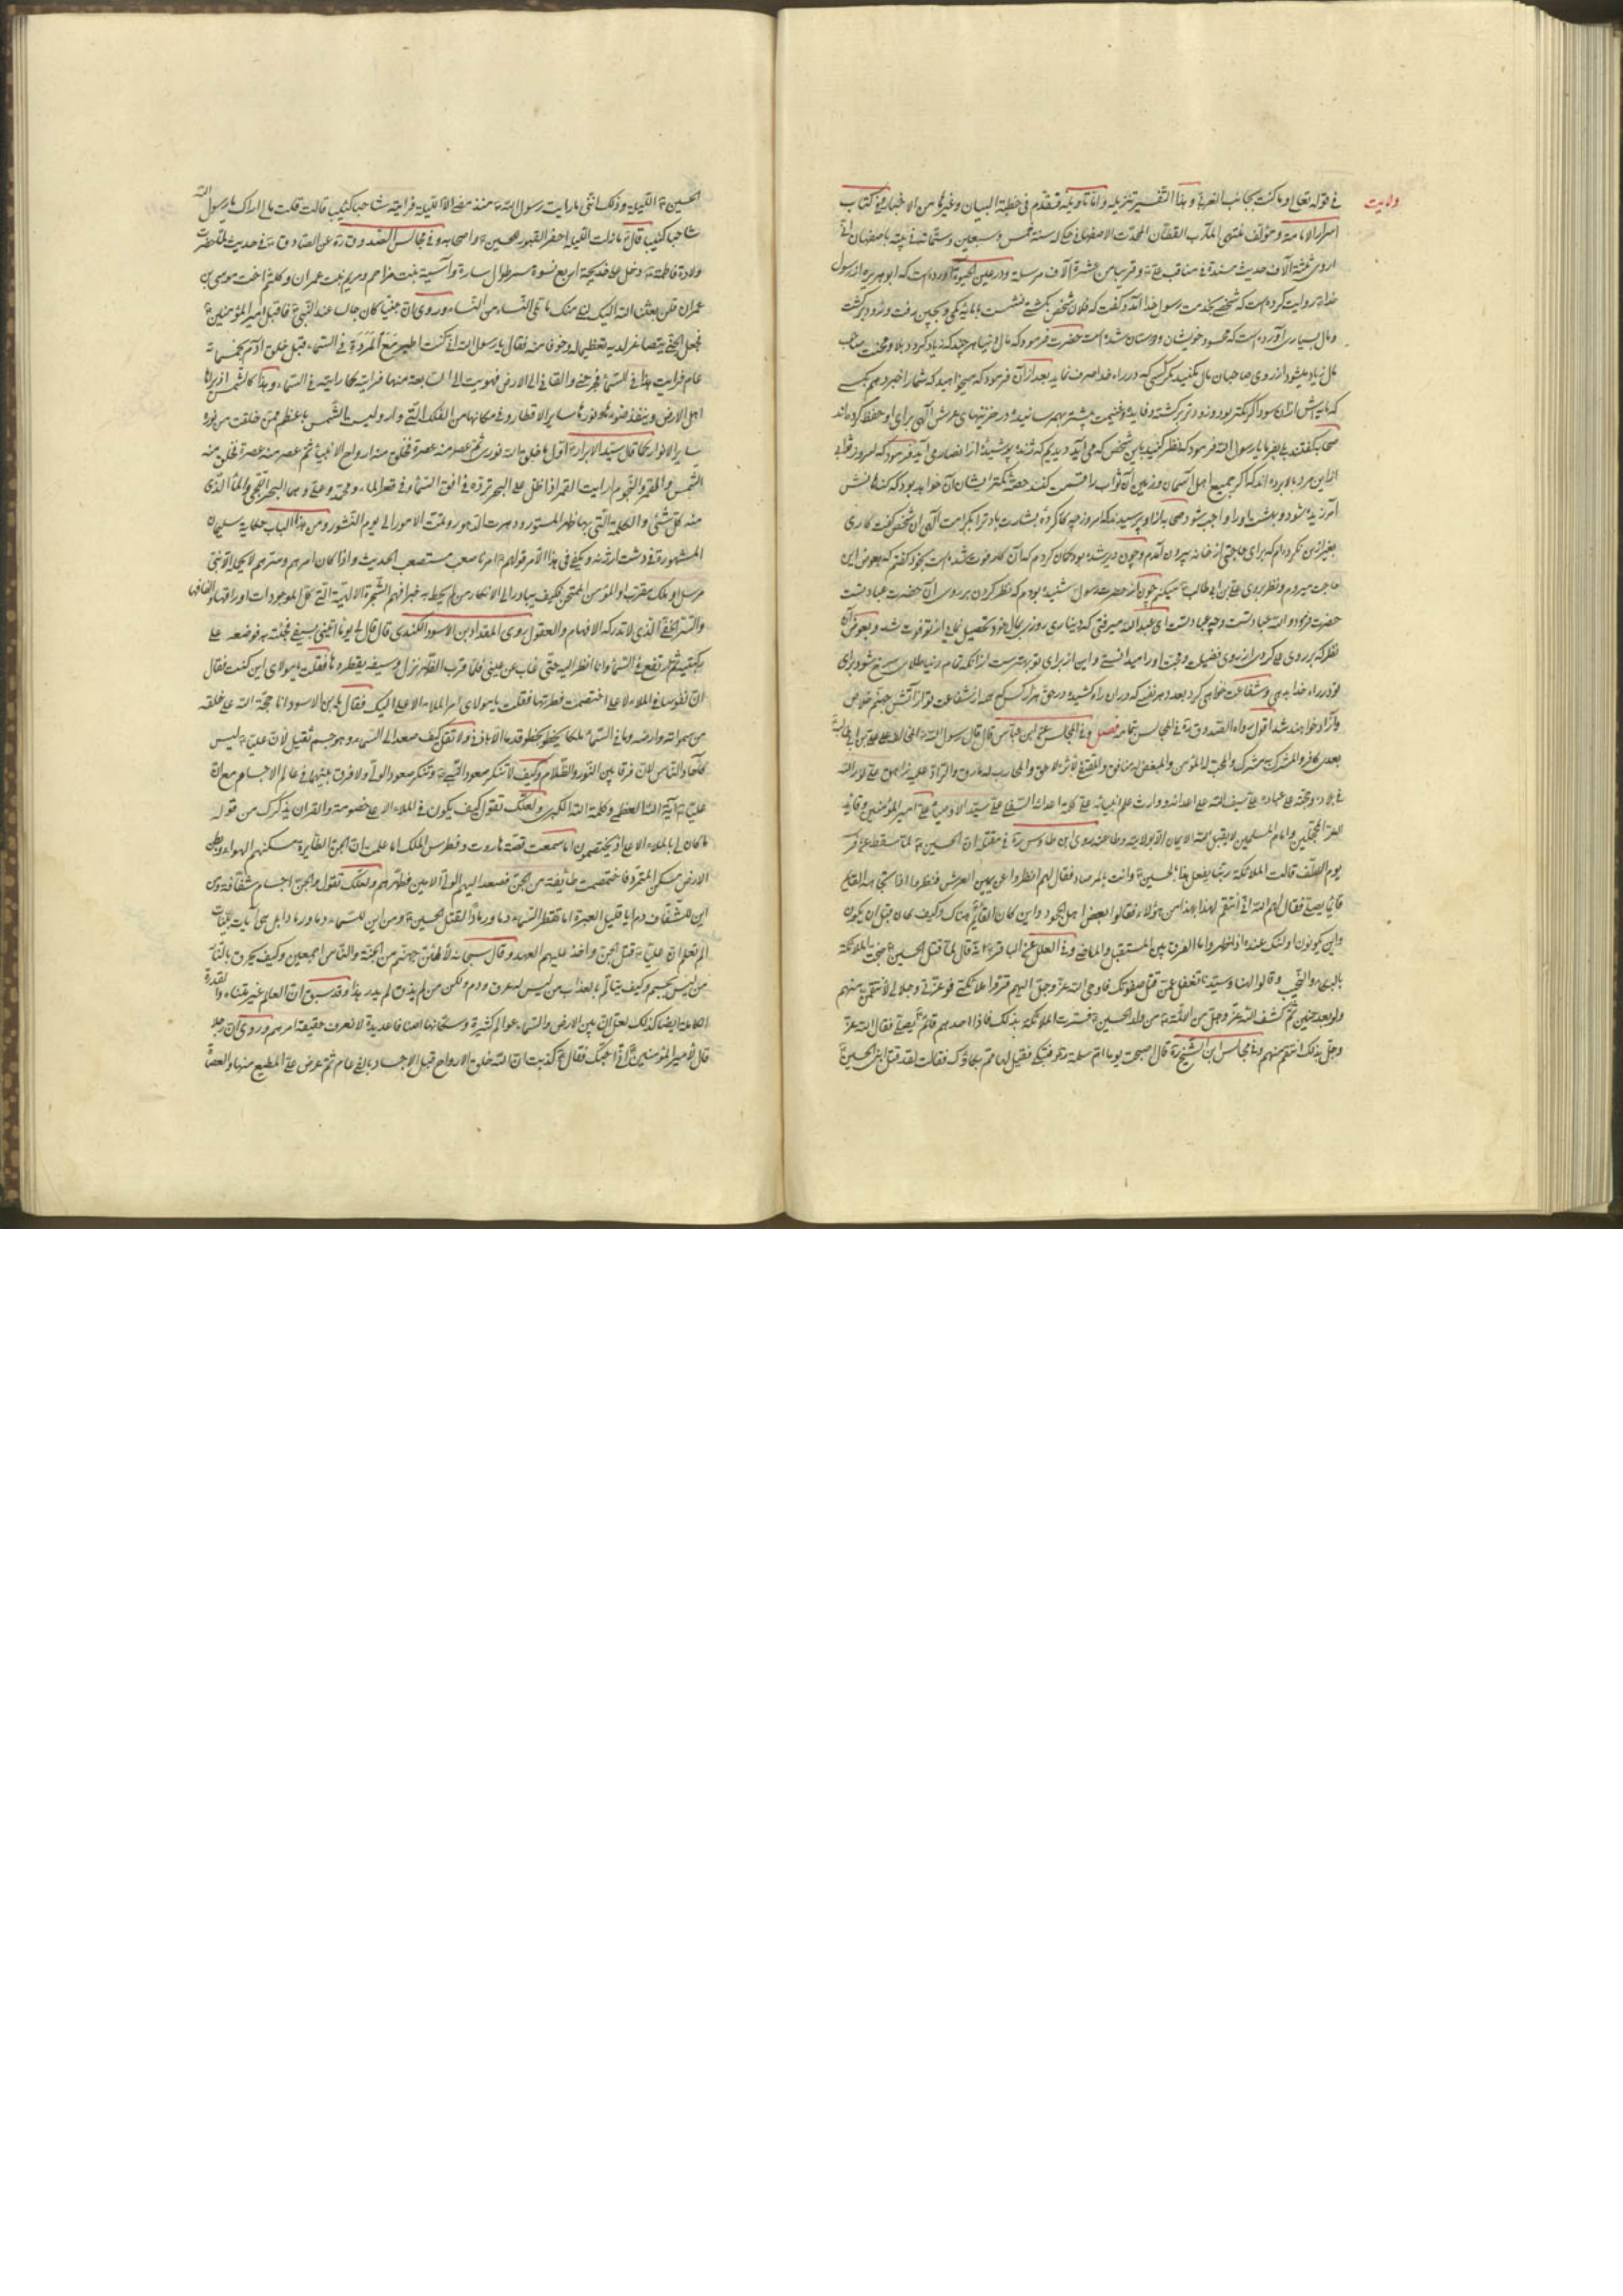 ولایت
فی قوله تعالی وما کنت بجانب الغربی و هذا التفسیر تنزیله و اما تاویله فتقدم فی خطبة البیان و غیرها من الاخبار و فی کتاب
اسرار الامامة و مؤلف منتهی المآرب القطان المحدث الاصفهانی سنة خمس و سبعین و ستمائة باصفهان انی
اروی ثلثة آلاف حدیث مسندة فی مناقب علی و قریبا من عشرة آلاف مرسلة و در عین الحیوة آورده است که ابو هریره از رسول
خدا روایت کرده است که شخصی بخدمت رسول خدا آمد و گفت که فلان شخص بکشتی نشست با مایه کمی و بچین رفت و زود برگشت
و مال بسیاری آورده است که محسود خویشان و دوستان شده است حضرت فرمود که مال دنیا هر چند که زیاد گردد بلا و محنت صاحب
مال زیاد میشود آرزوی صاحبان مال نکنید مگر کسی که در راه خدا صرف نماید بعد از آن فرمود که میخواهید که شما را خبر دهم بکسی
که مایه اش از آن کمتر بود و زودتر برگشته و غنیمت بیشتر بهم رسانیده در خزینهای عرش الهی برای او حفظ کرده اند
صحابه گفتند بلی یا رسول الله فرمود که نظر کنید باین شخص که می آید دیدیم که ژنده پوشیده از انصار می آید فرمود که امروز ثوابی
از این مرد بالا برده اند که اگر بجمیع اهل آسمان و زمین آن ثواب را قسمت کنند حصه کمتر ایشان آن خواهد بود که گناهانش
آمرزیده شود و بهشت او را واجب شود صحابه از او پرسیدند که امروز چه کار کرده بشارت باد ترا بکرامت الهی آن شخص گفت کاری
بغیر از این نکرده ام که برای حاجتی از خانه بیرون آمدم و چون دیر شده بود گمان کردم که آن کار فوت شده است بخود گفتم که بعوض این
حاجت میروم و نظر بروی علی بن ابی طالب میکنم چون از حضرت رسول شنیده بودم که نظر کردن بر روی آن حضرت عبادتست
حضرت فرمود والله عبادتست و چه عبادتست ای عبدالله میرفتی که دیناری روزی عیال خود تحصیل نمایی از تو فوت شد و بعوض آن
نظر که بر روی علی کردی از روی فضیلت و محبت او را میدانستی و این از برای تو بهتر است از آنکه تمام دنیا طلای سرخ شود برای تو
و در راه خدا بدهی و شفاعت خواهی کرد بعدد هر نفسی که در آن راه کشیده در حق هزار کس که همه از شفاعت تو از آتش جهنم خلاص
و آزاد خواهند شد اقول رواه الصدوق ره فی المجالس بتمامه فصل و فی المجالس عن ابن عباس قال قال رسول الله المخالف علی علی بن ابی طالب
بعدی کافر و المشرک به مشرک و المحب له مؤمن و المبغض له منافق و المقتفی لاثره لاحق و المحارب له مارق و الراد علیه زاهق علی نور الله
فی بلاده و حجته علی عباده علی سیف الله علی اعدائه و وارث علم انبیائه علی کلمة اعدائه السفلی علی سید الاوصیاء علی امیر المؤمنین و قائد
الغر المحجلین و امام المسلمین لا یقبل الله الایمان الا بولایته و طاعته روی ابن طاوس ره فی مقتل ان الحسین لما سقط عن فرسه
یوم الطف قالت الملائکة ربنا یفعل هذا بالحسین و انت بالمرصاد فقال لهم انظروا عن یمین العرش فنظروا اذا بشبح القائم
قائما یصلی فقال لهم الله انی انتقم لهذا بهذا من هؤلاء فقالوا بعض اهل الجمود و این کان القائم هناک و کیف کان قبل ان یکون
و این یکونون اولئک عنده اذا ظهر و اما الفرق بین المستقبل و الماضی و فی العلل عن الباقر انه قال لما قتل الحسین ضجت الملائکة
بالبکاء و النحیب و قالوا الهنا و سیدنا تغفل عمن قتل صفوتک فاوحی الله عز و جل الیهم قروا ملائکتی فوعزتی و جلالی لانتقمن منهم
ولو بعد حین ثم کشف الله عز و جل من الائمة من ولد الحسین فسرت الملائکة بذلک فاذا احدهم قائم یصلی فقال الله عز
و جل بذلک انتقم منهم و فی مجالس ابن الشیخ ره قال اصبحت یوما ام سلمة تبکی فقیل لها مم بکاؤک فقالت لقد قتل ابنی الحسین
الحسین اللیلة و ذلک اننی ما رایت رسول الله منذ مضی الا اللیلة فرایته شاحبا کئیبا قالت قلت ما لی اراک یا رسول الله
شاحبا کئیبا قال ما زلت اللیلة احفر القبور للحسین و اصحابه و فی مجالس الصدوق ره عن الصادق فی حدیث
ولادة فاطمة دخل علی خدیجة اربع نسوة سمر طوال سارة و آسیة بنت مزاحم و مریم بنت عمران و کلثم اخت موسی بن
عمران قلن بعثنا الله الیک لنلی منک ما تلی النساء من النساء و روی ان جنیا کان جالسا عند النبی فاقبل امیر المؤمنین
فجعل الجنی یتصاغر لدیه تعظیما له و خوفا منه فقال یا رسول الله انی کنت اطیر مع المردة فی السماء قبل خلق آدم بخمسمائة
عام فرایت هذا فی السماء فاخرجنی و القانی الی الارض فهویت الی السابعة منها فرایته کما رایته فی السماء و هذا کالشمس
اهل الارض و ینفذ ضوئها و نورها سایر الاقطار و فی مکانها من الفلک و لیست الشمس باعظم ممن خلقت من نوره
سایر الانوار کما قال سید الابرار اول ما خلق الله نوری ثم عصر منه عصرة فخلق منه ارواح الانبیاء ثم عصر منه عصرة فخلق منه
الشمس و القمر و النجوم اما رایت القمر اذا اطل علی البحر تره فی افق السماء و فی قعر الماء و محمد و علی و هما البحر
منه کل شیء و الکلمة التی بها ظهر المستور و دهرت الدهور و تمت الامور الی یوم النشور و من هذا الباب حکایة سلمان
المشهورة فی دشت ارژنه و یکفی فی هذا الامر قولهم امرنا صعب مستصعب الحدیث و اذا کان امرهم و سرهم لا یحمله الا نبی
مرسل او ملک مقرب او المؤمن الممتحن فکیف یبادر الی الانکار من لم یحط به خبرا فهم الشجرة الالهیة التی کل الموجودات اوراقها
و السر الخفی الذی لا تدرکه الافهام و العقول روی المقداد بن الاسود الکندی قال قال لی یوما ائتنی بسیفی فجئته به فوضعه علی
رکبتیه ثم ارتفع فی السماء و انا انظر الیه حتی غاب عن عینی فلما قرب الظهر نزل و سیفه یقطر دما فقلت یا مولای این کنت فقال
ان نفوسا فی الملاء الاعلی اختصمت فطهرتها فقلت یا مولای امر الملاء الاعلی الیک فقال یا بن الاسود انا حجة الله علی خلقه
من سمواته و ارضه و ما فی السماء ملک یخطو قدما الا باذنی و لا تقل کیف صعد الی السماء و هو جسم ثقیل لان علیا لیس
کآحاد الناس لان فرقا بین النور و الظلام و کیف لا تنکر صعود النبی و تنکر صعود الولی و لا فرق بینهما فی عالم الاجسام مع ان
علیا آیة الله العظمی و کلمة الله الکبری و لعلک تقول کیف یکون فی الملاء الاعلی خصومة و القران یذکرک من قوله
ما کان لی بالملاء الاعلی اذ یختصمون اما سمعت قصة هاروت و فطرس الملک اما علمت ان الجن الطایرة مسکنهم الهواء و بطن
الارض مسکن المتمردة فاختصمت طائفة من الجن فصعد الیهم الولی الامین فطهرهم و لعلک تقول و الجن اجسام شفافة و من
این للشفاف دم یا قلیل العبرة اما تقطر السماء دما و رمادا لقتل الحسین و من این للسماء دما و رمادا بل هی آیات بینات
الم تعلم ان علیا قتل الجن و اخذ علیهم العهد و قال سبحانه لاملئن جهنم من الجنة و الناس اجمعین و کیف یحرق بالنار
من لیس بجسم و کیف یتالم بالعذاب من لیس له عرق و دم و لکن من لم یذق لم یدر هذا و قد سبق ان العالم غیر متناه و القدرة
الکاملة ایضا کذلک لعل ان بین الارض و السماء عوالم کثیرة و سکانها اصنافا عدیدة لا نعرف حقیقة امرهم و روی ان رجلا
قال لامیر المؤمنین انی احبک فقال کذبت ان الله خلق الارواح قبل الاجساد بالفی عام ثم عرض علی المطیع منها و العصاة